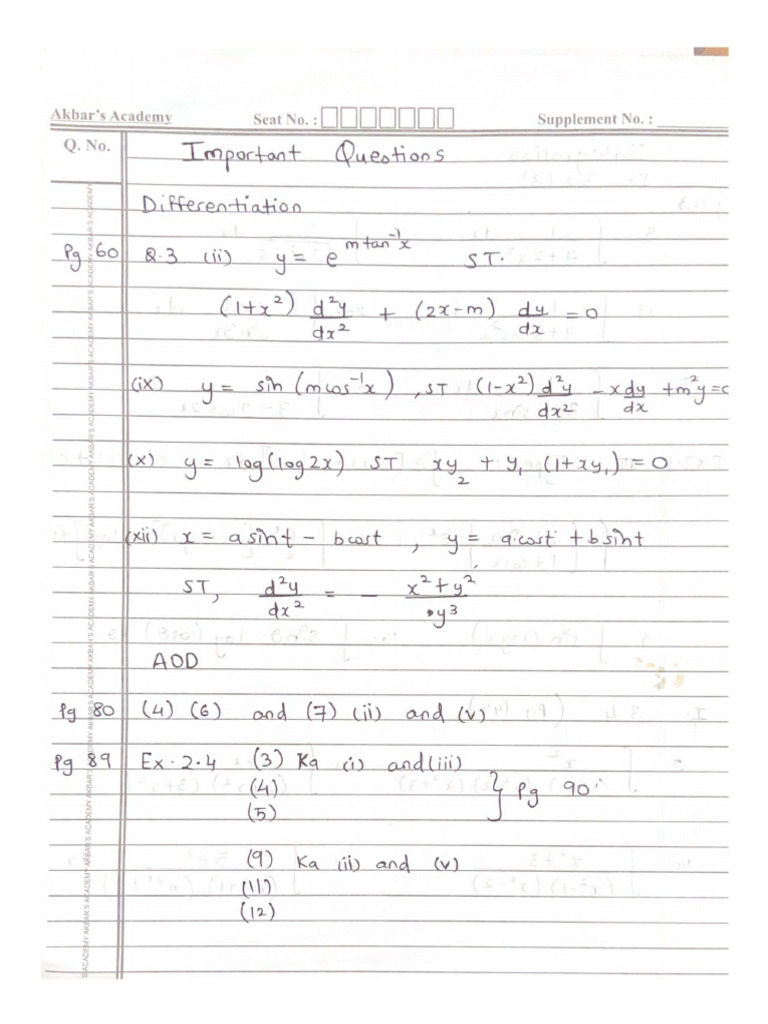 Akbar's Academy Seat No. : Supplement No. :
Q. No. Important Questions
Differentiation
Pg 60 Q.3 (ii) y = e^(m tan⁻¹x) ST.
(1+x²) d²y/dx² + (2x-m) dy/dx = 0
(ix) y = sin (m cos⁻¹x), ST (1-x²) d²y/dx² - x dy/dx + m²y = 0
(x) y = log(log2x) ST xy₂ + y₁ (1+xy₁) = 0
(xii) x = a sint - b cost , y = a cost + b sint
ST, d²y/dx² = - x²+y²/y³
AOD
Pg 80 (4) (6) and (7) (ii) and (v)
Pg 89 Ex. 2.4 (3) Ka (i) and (iii)
(4) } Pg 90
(5)
(9) Ka (ii) and (v)
(11)
(12)
AKBAR'S ACADEMY AKBAR'S ACADEMY AKBAR'S ACADEMY AKBAR'S ACADEMY